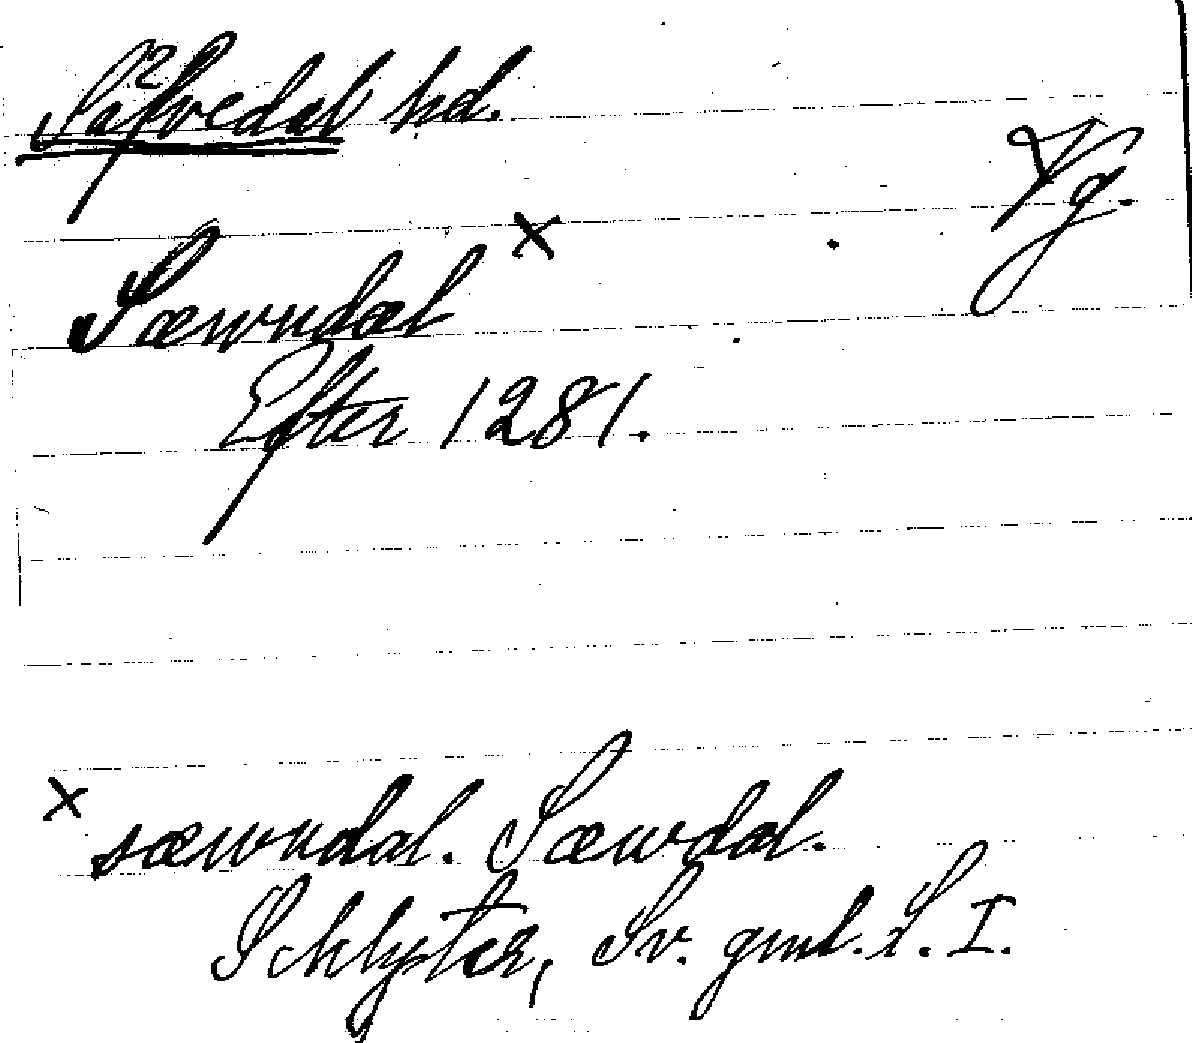 Säfvedal hd.
Vg.
Sæwndal x
Efter 1281.
x sæwndal. Sæwdal.
Schlyter, Sv. gml. L. I.